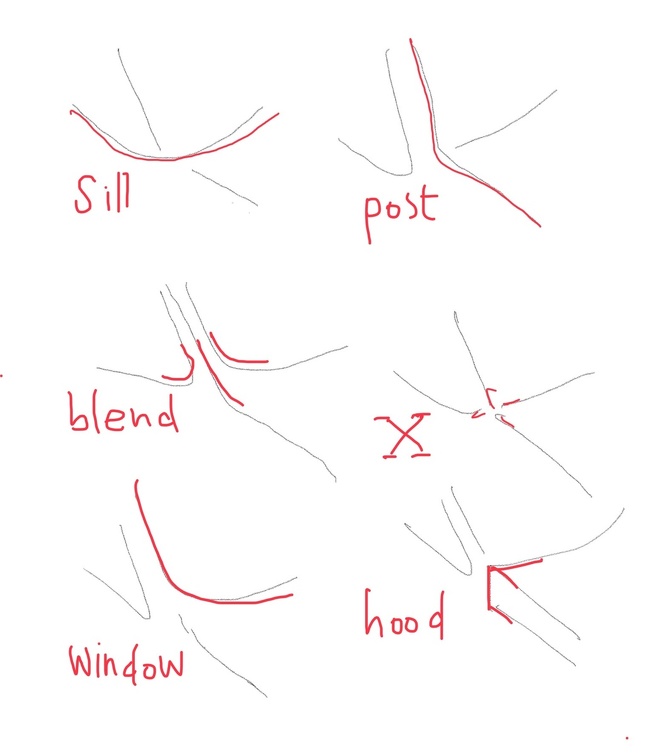 Sill
post
blend
X
window
hood